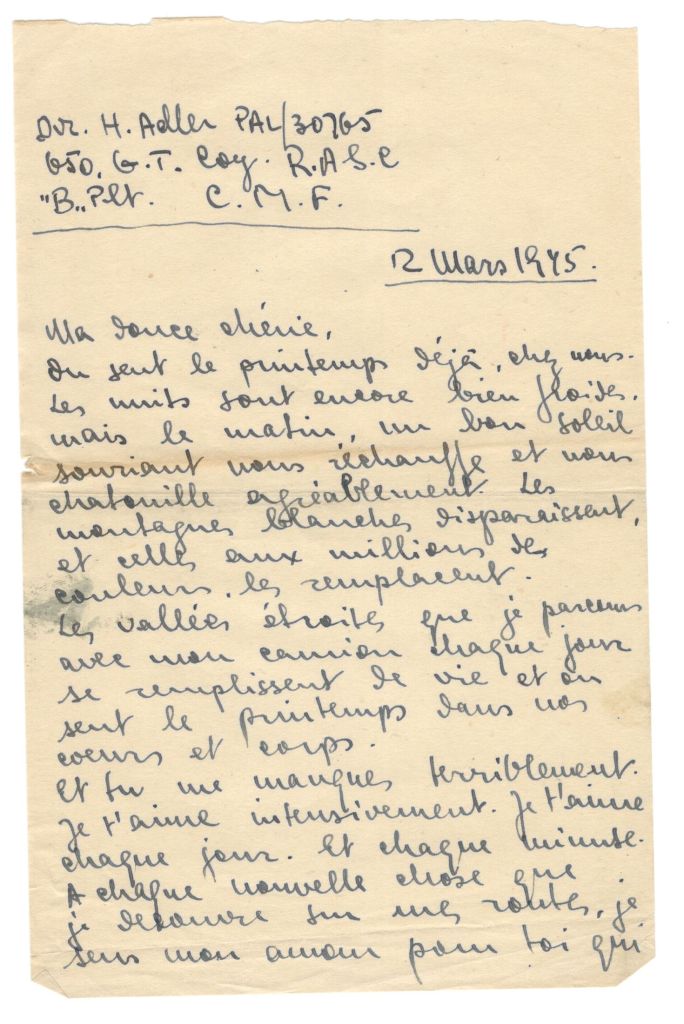 Dvr. H. Adler PAL/30765
650, G.T. Coy. R.A.S.C
"B" Plt. C.M.F.
12 Mars 1945.
Ma douce chérie,
On sent le printemps déjà, chez nous.
Les nuits sont encore bien froides,
mais le matin, un bon soleil
souriant nous réchauffe et nous
chatouille agréablement. Les
montagnes blanches disparaissent,
et celles aux millions des
couleurs, les remplacent.
Les vallées étroites que je parcours
avec mon camion chaque jour
se remplissent de vie et on
sent le printemps dans nos
coeurs et corps.
Et tu me manques terriblement.
Je t'aime intensivement. Je t'aime
chaque jour. Et chaque minute.
A chaque nouvelle chose que
je decouvre sur mes routes, je
sens mon amour pour toi qui